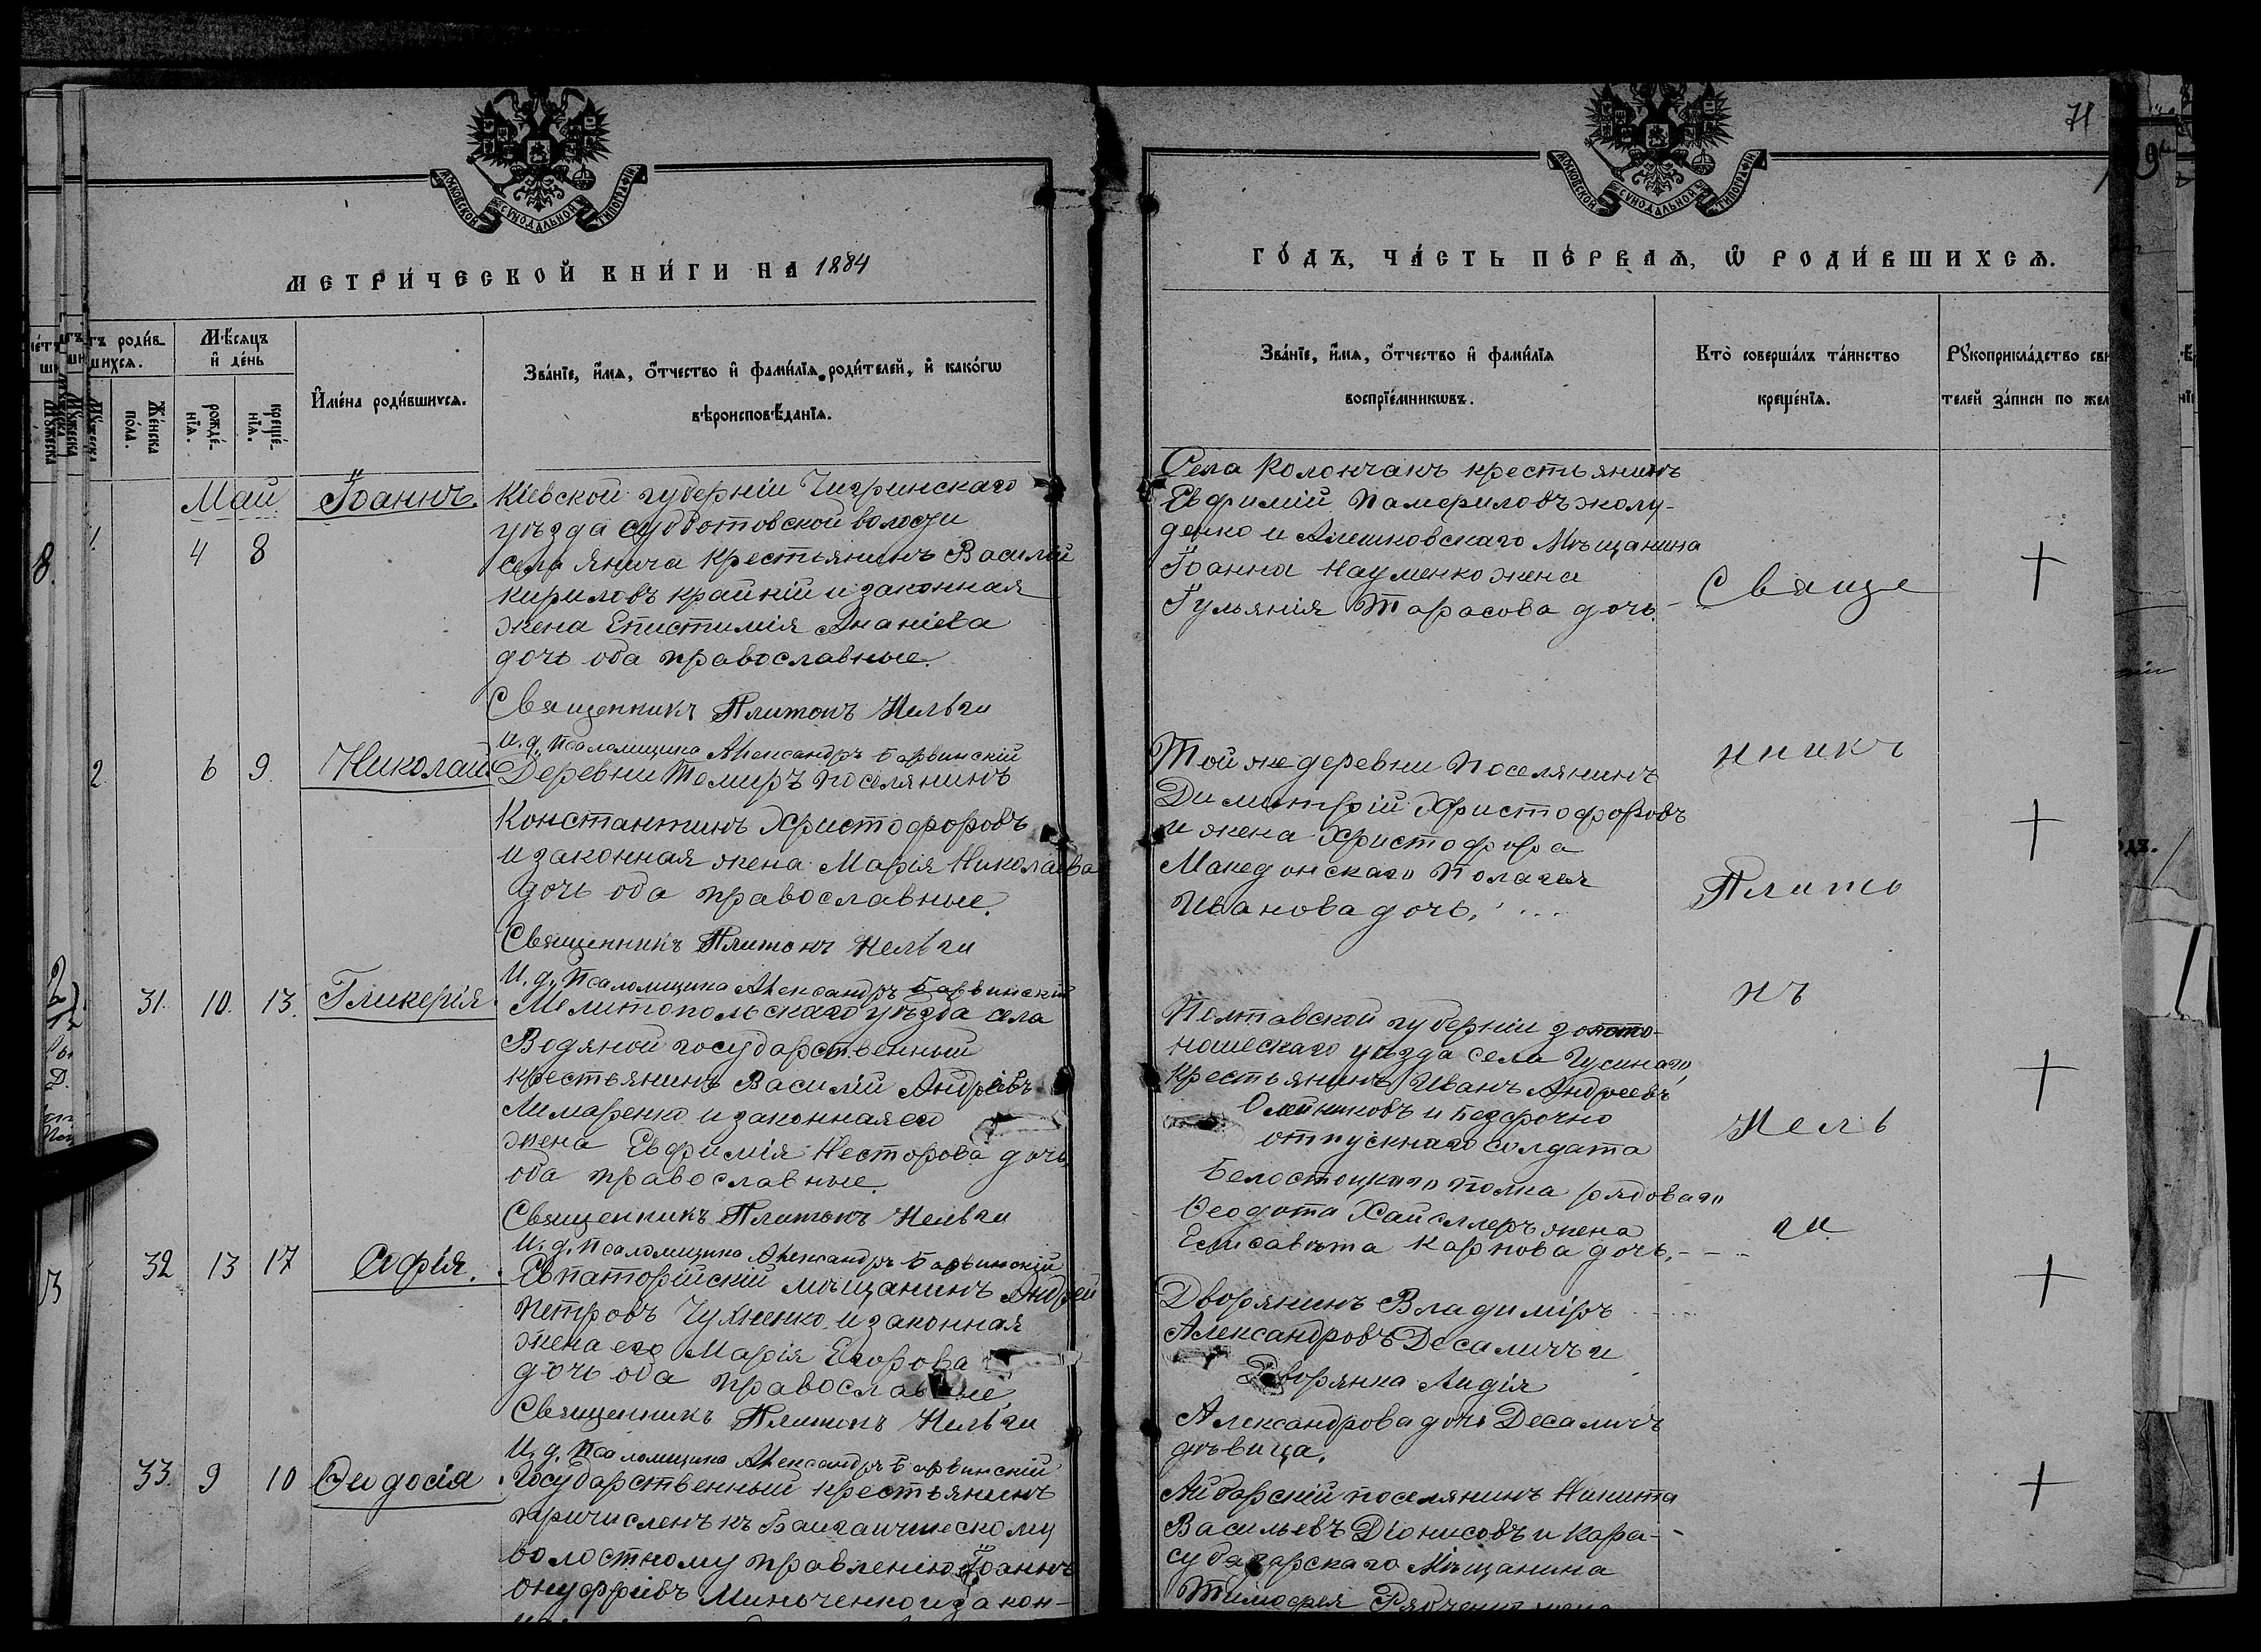 МОСКОВСКОЙ СѴНОДАЛЬНОЙ ТИПОГРАФІИ
МЕТРИ́ЧЕСКОЙ КНИ́ГИ НА 1884
тъ роди́в-
шихся.
Же́нска
по́ла.
Мѣ́сяцъ
и҆ де́нь
рожде́-
нїя.
креще́-
нїя.
И҆мена̀ роди́вшихся.
Зва́нїе, и҆́мя, ѻ҆́тчество и҆ фами́лїя роди́телей, и҆ како́гѡ
вѣроисповѣ́данїя.
Май
4 8
Іоаннъ.
Кіевской губерніи Чигринскаго
уѣзда субботовской волости
села Янича крестьянинъ Василій
Кириловъ крайній и законная
жена Епистимія Ананіева
дочь оба православные.
Священникъ Платонъ Нельги
И. д. Псаломщика Александръ Барвинскій
2 6 9 Николай
Деревни Темиръ поселянинъ
Константинъ Христофоровъ
и законная жена Марія Николаева
дочь оба православные.
Священникъ Платонъ Нельги
И. д. Псаломщика Александръ Барвинскій
31. 10. 13. Гликерія
Мелитопольскаго уѣзда села
Водяной государственный
крестьянинъ Василій Андрѣевъ
Лимаренко и законная его
жена Евфимія Несторова дочь
оба православные.
Священникъ Платонъ Нельги
И. д. Псаломщика Александръ Барвинскій
32 13 17 Софія.
Евпаторійскій мѣщанинъ Андрей
Петровъ и законная
жена его Марія Егорова
дочь оба православные
Священникъ Платонъ Нельги
И. д. Псаломщика Александръ Барвинскій
33. 9 10 Феодосія
Государственный крестьянинъ
причисленъ къ
волостному правленію Іоаннъ
Онуфріевъ Минченко и закон-
МОСКОВСКОЙ СѴНОДАЛЬНОЙ ТИПОГРАФІИ
71
ГО́ДЪ, ЧА́СТЬ ПЕ́РВАЯ, Ѡ҆ РОДИ́ВШИХСЯ.
Зва́нїе, и҆́мя, ѻ҆́тчество и҆ фами́лїя
воспрїе́мникѡвъ.
Кто̀ соверша́лъ та́инство
креще́нїя.
Рꙋкоприкла́дство сви
телей за́писи по жел
Села Колончакъ крестьянинъ
Евфимій Памфиловъ Жолу-
денко и Алешковскаго Мѣщанина
Іоанна Науменко жена
Іульянія Тарасова дочь.
Свяще
Той же деревни Поселянинъ
Димитрій Христофоровъ
и жена Христофора
Македонскаго Полагея
Иванова дочь.
нникъ
Плато
Полтавской губерніи золото-
ношескаго уѣзда села Гусинаго,
крестьянинъ Иванъ Андреевъ
Олейниковъ и безсрочно
отпускнаго солдата
Белостоцкаго полка рядоваго
Феодота жена
Елисавѣта Карпова дочь.
нъ
Нель
ги
Дворянинъ Владиміръ
Александровъ Десаличъ и
Дворянка Лидія
Александрова дочь Десаличъ
дѣвица.
Айдарскій поселянинъ Никита
Васильевъ Діонисовъ и Кара-
субазарскаго Мѣщанина
Тимофея Рябченко жена